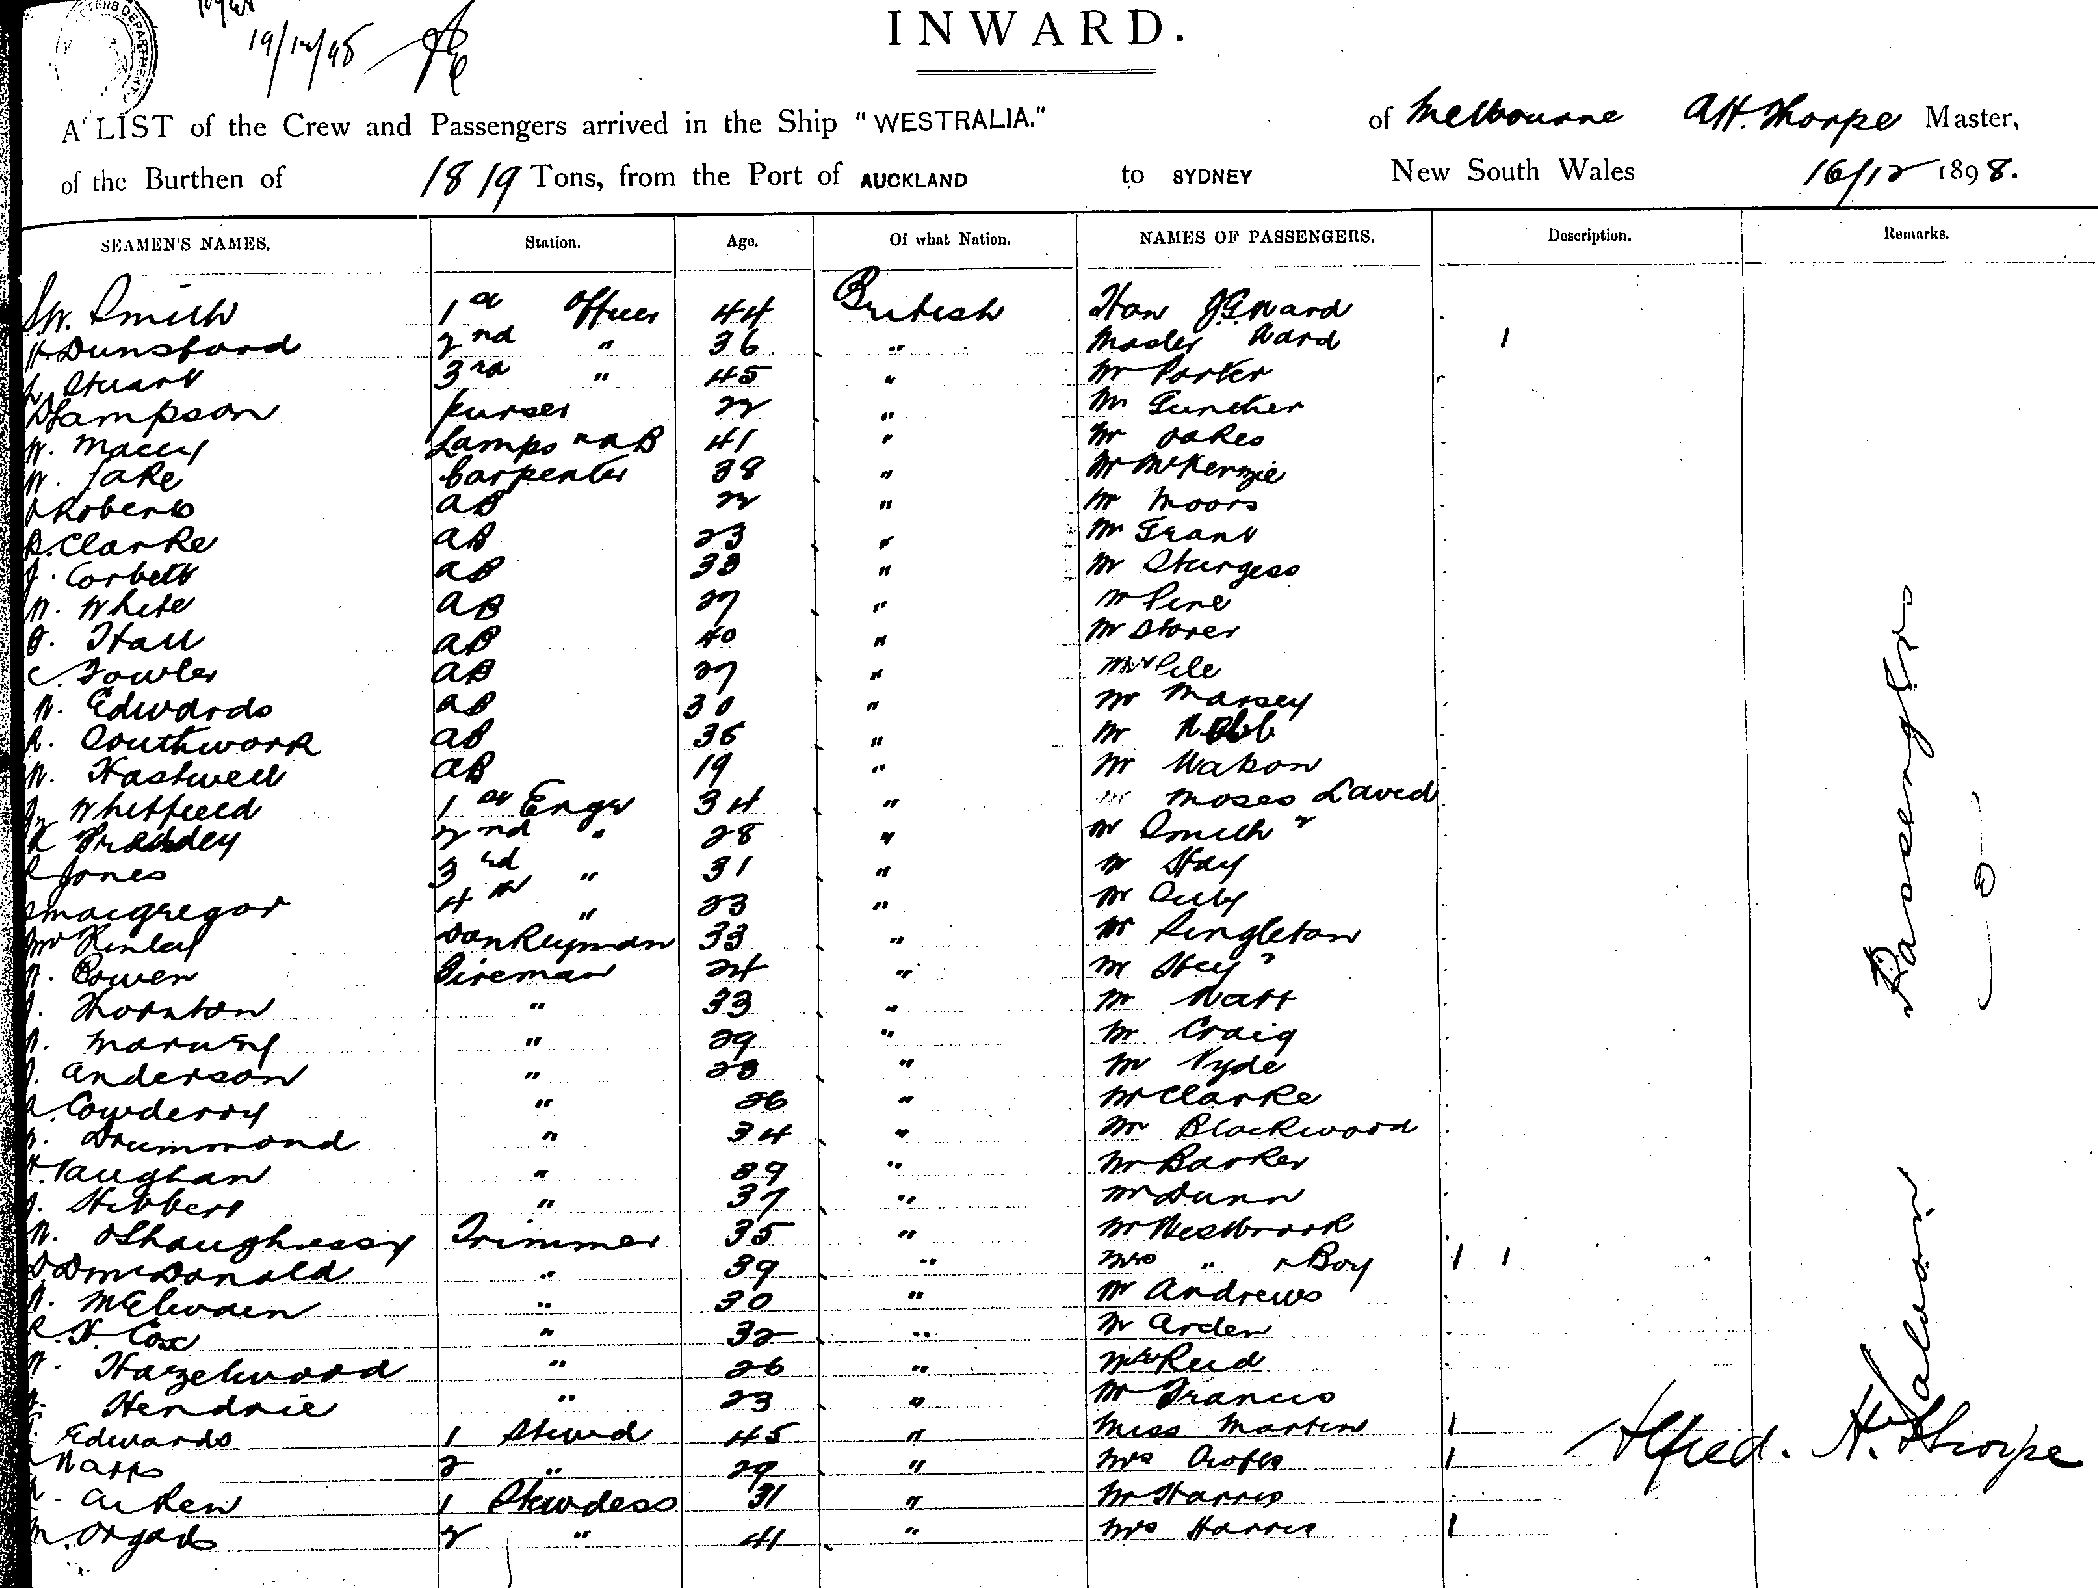 19/12/98
INWARD.
A LIST of the Crew and Passengers arrived in the Ship "WESTRALIA." of Melbourne AH. Thorpe Master,
of the Burthen of 1819 Tons, from the Port of AUCKLAND to SYDNEY New South Wales 16/12 1898.
SEAMEN'S NAMES. Station. Age. Of what Nation. NAMES OF PASSENGERS. Description. Remarks.
Smith 1st Officer 44 British Hon J.G. Ward
Dunsford 2nd " 36 " Master Ward 1
Stuart 3rd " 45 " Mr Porter
Sampson Purser 22 " Mr Guncher
W. Macey Lamps " AB 41 " Mr Oakes
W. Jake Carpenter 38 " Mr McKenzie
Roberts AB 22 " Mr Moors
Clarke AB 23 " Mr Grant
J. Corbett AB 38 " Mr Sturgess
W. White AB 27 " Mr Pine
J. Hall AB 40 " Mr Storer
C. Fowler AB 27 " Pile
W. Edwards AB 30 " Mr Marsey
R. Southwork AB 36 " Mr Webb
W. Hastwell AB 19 " Mr Watson
Whitfield 1st Engr 34 " Moses David
2nd " 28 " Mr Smith
Jones 3rd " 31 " Mr Hay
Macgregor 4th " 23 "
Finlay Donkeyman 33 " Mr Singleton
Cowen Fireman 24 " Mr Hey
J. Thornton " 33 " Mr Watt
" 29 " Mr Craig
J. Anderson " 28 " Mr Hyde
Cowderry " 26 " Mr Clarke
Drummond " 34 " Mr Blackwood
Vaughan " 39 " Mr Barker
J. Hibbert " 37 " Mr Dunn
W. OShaughnessy Trimmer 35 " Mr Westbrook
McDonald " 39 " Mrs " Boy 1 1
McElwain " 30 " Mr Andrews
H. Cox " 32 " Mr Arden
Hazelwood " 26 " Reid
Hendrie " 23 " Mr Francis
Edwards 1 Stewd 45 " Miss Martin 1
Watts 2 " 29 " Mrs Crofts 1
Aiken 1 Stewdess 31 " Mr Harris
M. Orgads 2 " 41 " Mrs Harris 1
Passengers
Saloon
Alfred. H. Thorpe